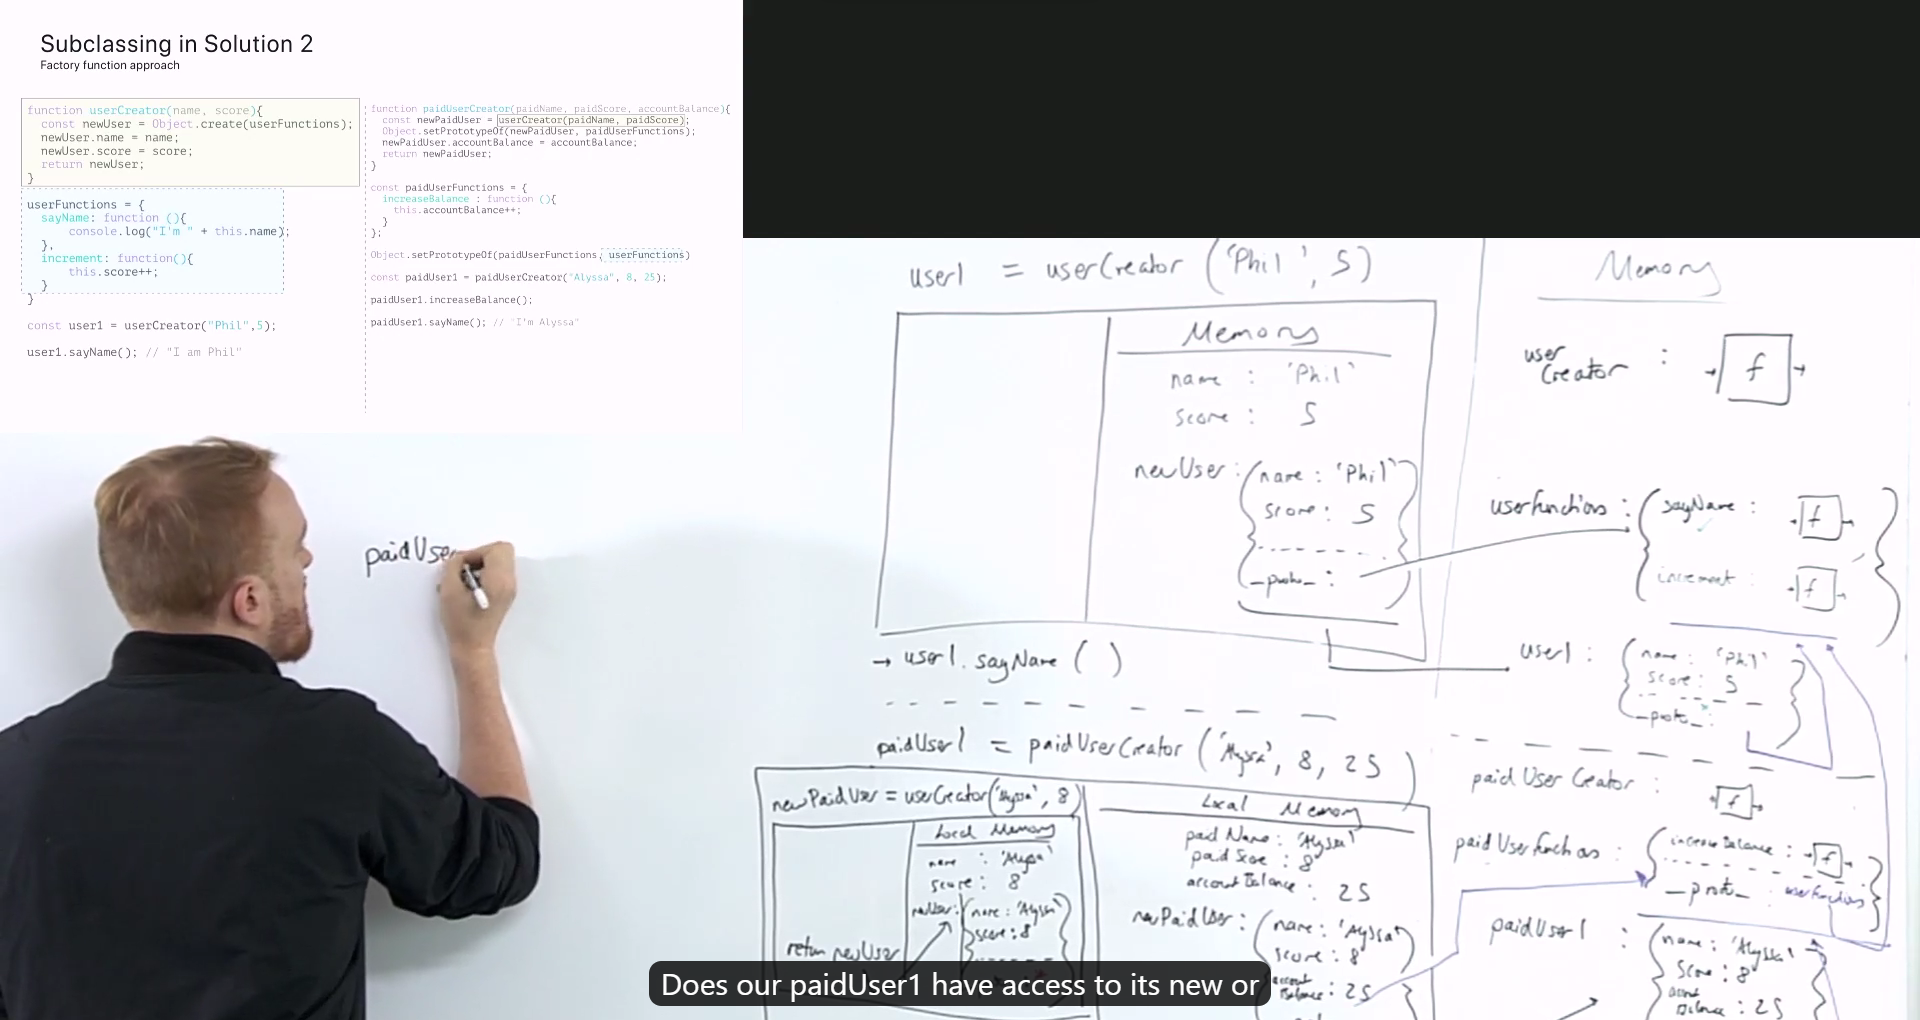 Subclassing in Solution 2
Factory function approach
function userCreator(name, score){
const newUser = Object.create(userFunctions);
newUser.name = name;
newUser.score = score;
return newUser;
}
userFunctions = {
sayName: function (){
console.log("I'm " + this.name);
},
increment: function(){
this.score++;
}
}
const user1 = userCreator("Phil",5);
user1.sayName(); // "I am Phil"
function paidUserCreator(paidName, paidScore, accountBalance){
const newPaidUser = userCreator(paidName, paidScore);
Object.setPrototypeOf(newPaidUser, paidUserFunctions);
newPaidUser.accountBalance = accountBalance;
return newPaidUser;
}
const paidUserFunctions = {
increaseBalance : function (){
this.accountBalance++;
}
};
Object.setPrototypeOf(paidUserFunctions, userFunctions)
const paidUser1 = paidUserCreator("Alyssa", 8, 25);
paidUser1.increaseBalance();
paidUser1.sayName(); // "I'm Alyssa"
paidUse
user1 = userCreator ('Phil', 5)
Memory
name : 'Phil'
score : 5
newUser : { name : 'Phil'
score : 5
_proto_ : }
→ user1.sayName ( )
paidUser1 = paidUserCreator ('Alyssa', 8, 25)
newPaidUser = userCreator('Alyssa', 8)
Local Memory
name : 'Alyssa'
score : 8
newUser: { name : 'Alyssa'
score : 8
return newUser
Local Memory
paid Name : 'Alyssa'
paid Score : 8
account Balance : 25
newPaidUser : { name : 'Alyssa'
score : 8
account
Balance : 25
Memory
user
Creator : f
userFunctions : { sayName : f
increment : f }
user1 : { name : 'Phil'
score : 5
_proto_ : }
paid User Creator : f
paidUserFunctions : { increaseBalance : f
_proto_ : userFunctions }
paidUser1 : { name : 'Alyssa'
Score : 8
Balance : 25
Does our paidUser1 have access to its new or